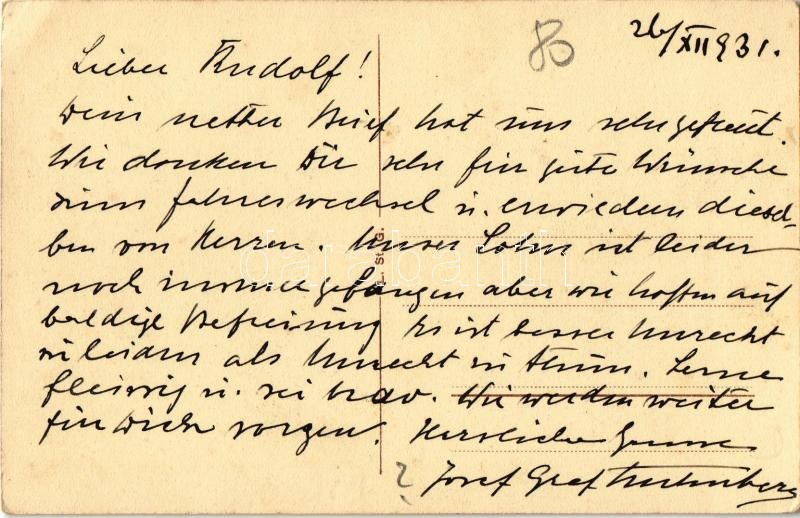 26/XII 931.
80
Lieber Rudolf!
Dein netter Brief hat uns sehr gefreut.
Wir danken Dir sehr für gute Wünsche
zum Jahreswechsel u. erwiedern diesel-
ben von Herzen. Unser Sohn ist leider
noch immer gefangen aber wir hoffen auf
baldige Befreiung Es ist besser Unrecht
zu leiden als Unrecht zu thun. Lerne
fleissig u. sei brav. Wir werden weiter
für Dich sorgen. Herzliche Grüsse
? Josef Graf
L. St. G.
darabanth